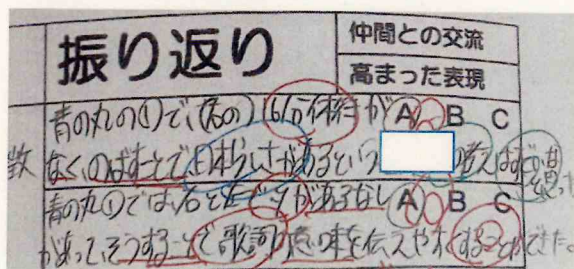 振り返り
仲間との交流
高まった表現
青の丸の①で、(右の)16分休符が A B C
数
なく、のばすことで、日本らしさがあるという の考えはすごいと思った
青の丸①では、右と左で、があるなし A B C
があって、そうすることで歌詞の意味を伝えやすくすることができた。